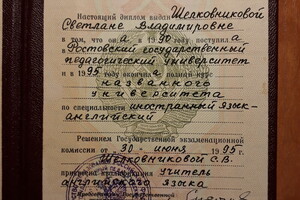 Настоящий диплом выдан Шелковниковой
Светлане Владимировне
в том, что он а в 1990 поступил а
в Ростовский государственный
педагогический университет
и в 1995 окончил а полный курс
названного
университета
по специальности иностранный язык-
английский
Решением Государственной экзаменационной
комиссии от 30 июня 1995 г.
Шелковниковой С.В.
присвоена квалификация учитель
английского языка
Председатель Государственной